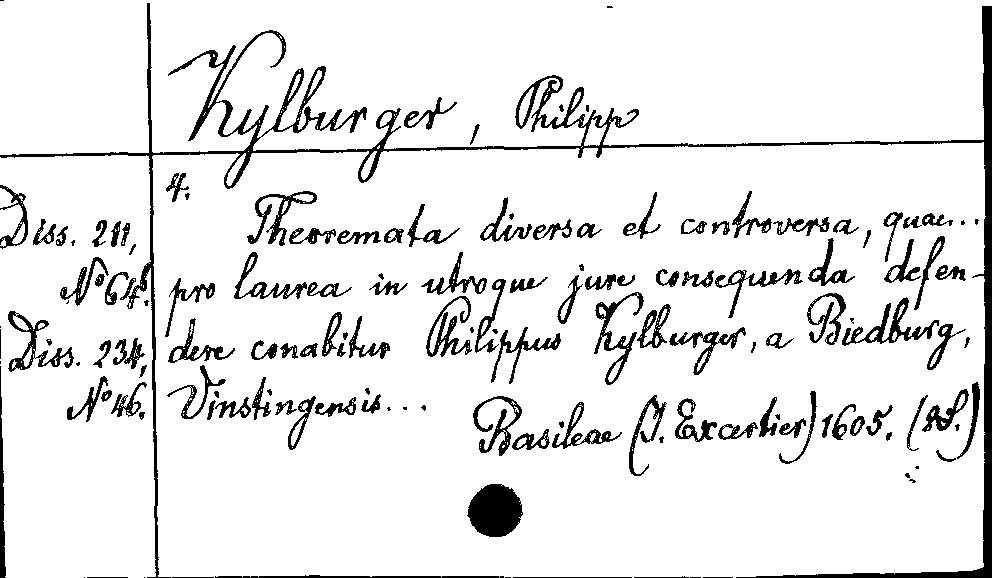 Kylburger, Philipp
4.
Diss. 211,
No 64b.
Diss. 234,
No 46.
Theoremata diversa et controversa, quae...
pro laurea in utroque jure consequenda defen-
dere conabitur Philippus Kylburger, a Biedburg,
Vinstingensis...
Basileae (J. Excertier) 1605. (8S.)